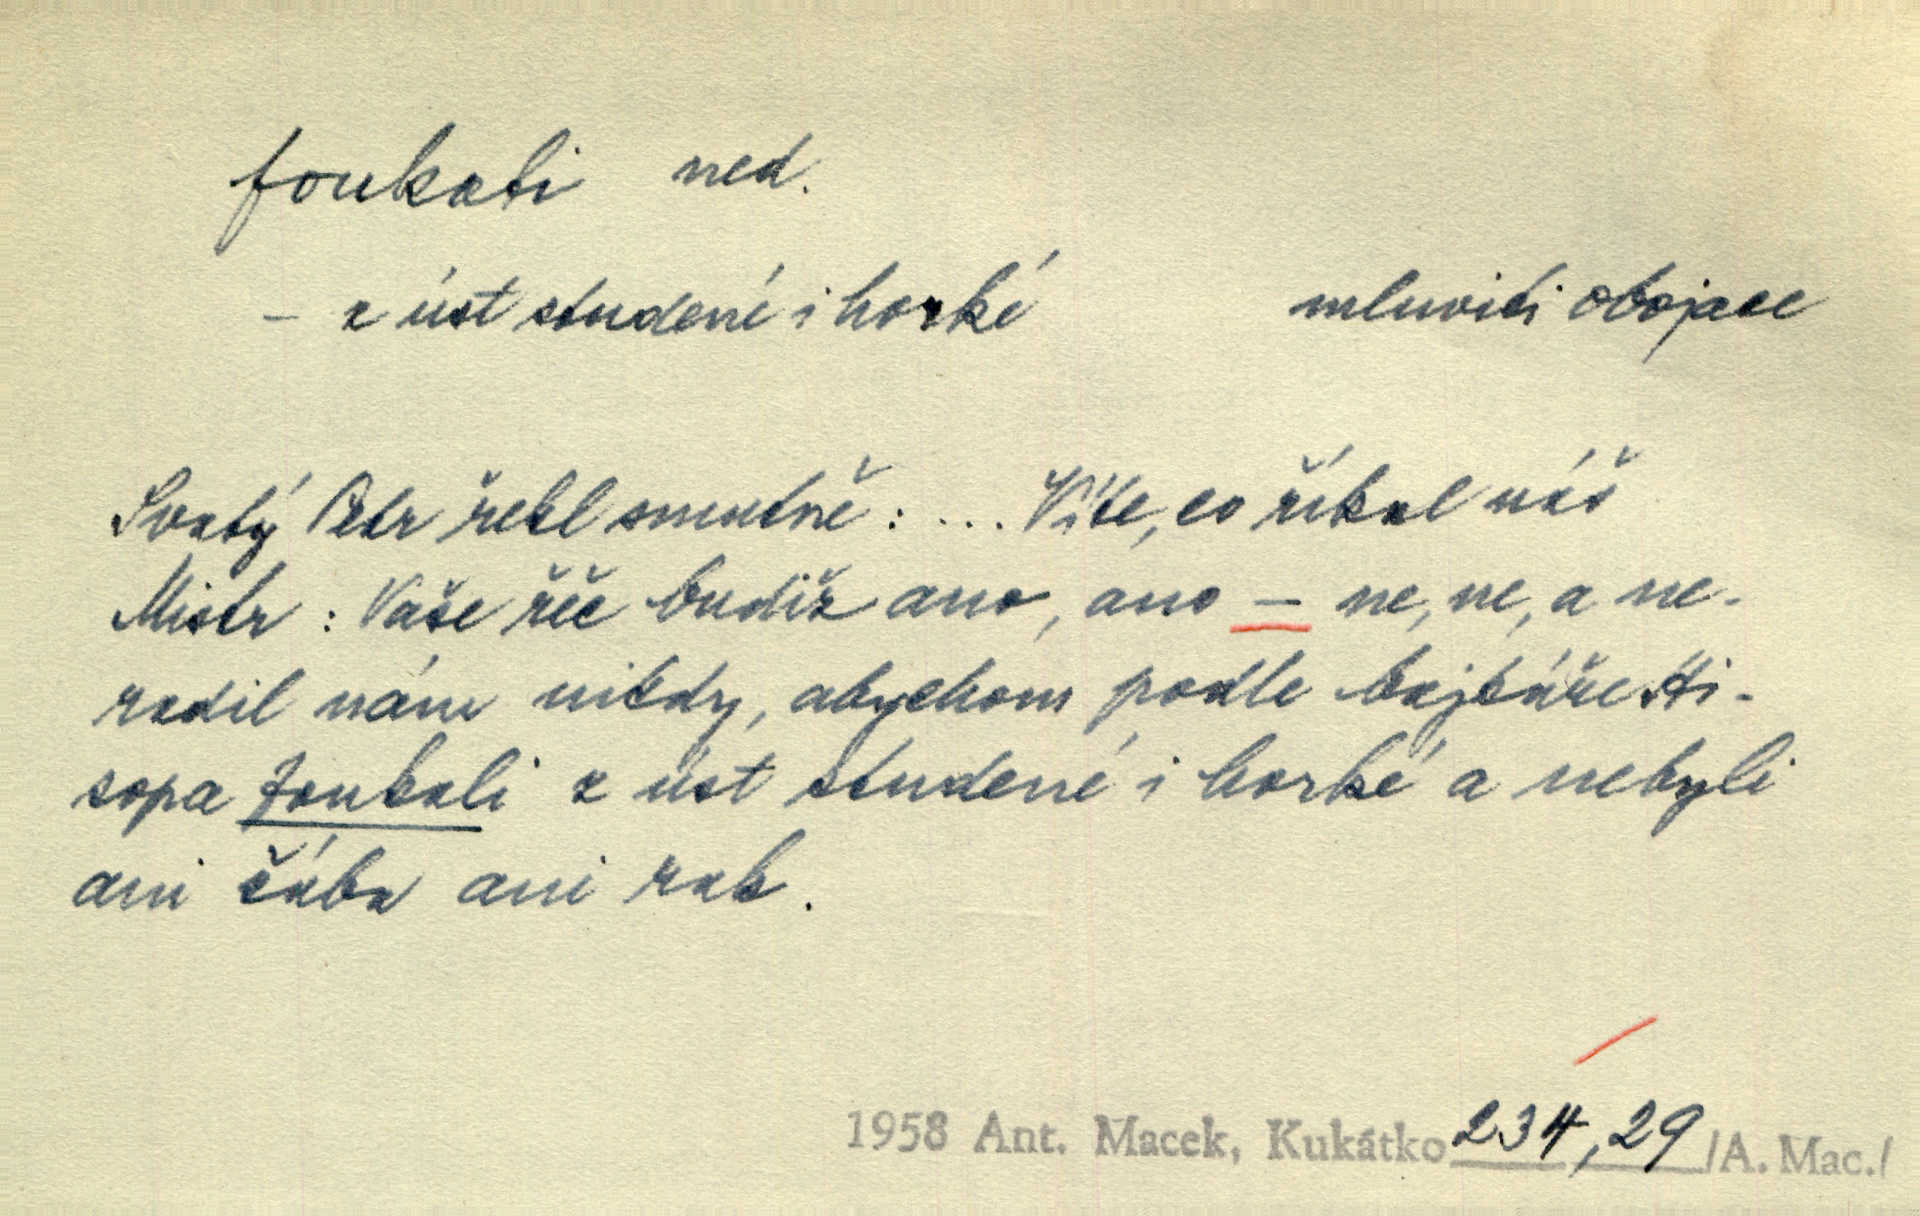 foukati ned.
– z úst studené i horké mluviti obojace
Svatý Petr řekl smutně: ... Víte, co říkal náš
Mistr: Vaše řeč budiž ano, ano – ne, ne, a ne-
radil nám nikdy, abychom podle bajkáře Ai-
sopa foukali z úst studené i horké a nebyli
ani žába ani rak.
1958 Ant. Macek, Kukátko 234,29 /A. Mac./